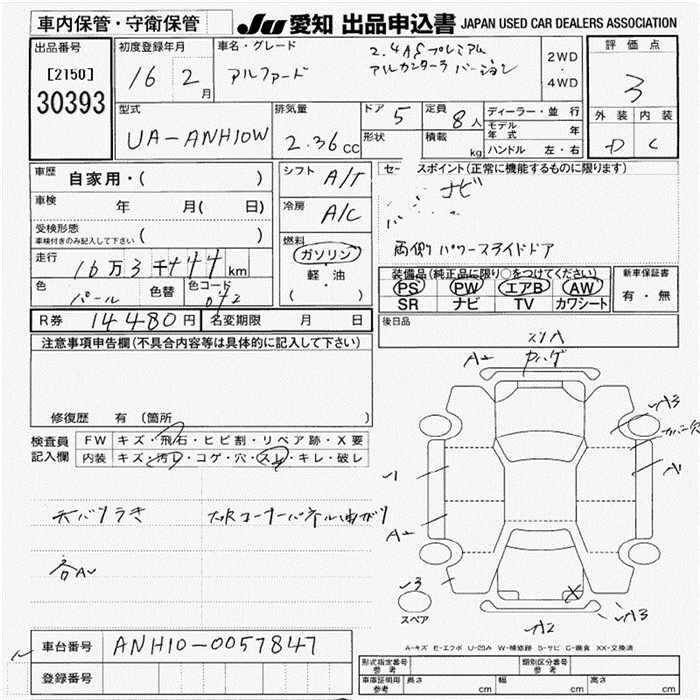 車内保管・守衛保管
JU 愛知 出品申込書 JAPAN USED CAR DEALERS ASSOCIATION
出品番号
[2150]
30393
初度登録年月
16 2月
車名・グレード
アルファード
2.4AS プレミアム
アルカンターラ バージョン
2WD
・
4WD
評価点
3
外装 内装
D C
型式
UA-ANH10W
排気量
2.36cc
ドア 5
形状
定員 8人
積載 kg
ディーラー・並行
モデル年式 年
ハンドル 左・右
車歴 自家用・( )
車検 年 月( 日)
受検形態
車検付きのみ記入して下さい ( )
走行 16万3千444km
色 パール 色替 色コード 042
シフト A/T
冷房 A/C
燃料
ガソリン
軽・油
( ・ )
セールスポイント(正常に機能するものに限ります)
ナビ
両側パワースライドドア
装備品(純正品に限り○をつけてください)
PS PW エアB AW
SR ナビ TV カワシート
新車保証書
有・無
R券 14480円 名変期限 月 日
後日品
注意事項申告欄(不具合内容等は具体的に記入して下さい)
修復歴 有(箇所
検査員記入欄
FW キズ・飛石・ヒビ割・リペア跡・X要
内装 キズ・汚レ・コゲ・穴・スレ・キレ・破レ
天バリうき
各AU
A2
A3
カバー穴
A1
A2
3
スペア
X
A2
A3
A-キズ E-エクボ U-凹み W-補修跡 S-サビ C-腐食 XX-交換済
車台番号 ANH10-0057847
登録番号
形式指定番号 参考
類別区分番号 参考
車庫証明用 参考 長さ cm 幅 cm 高さ cm